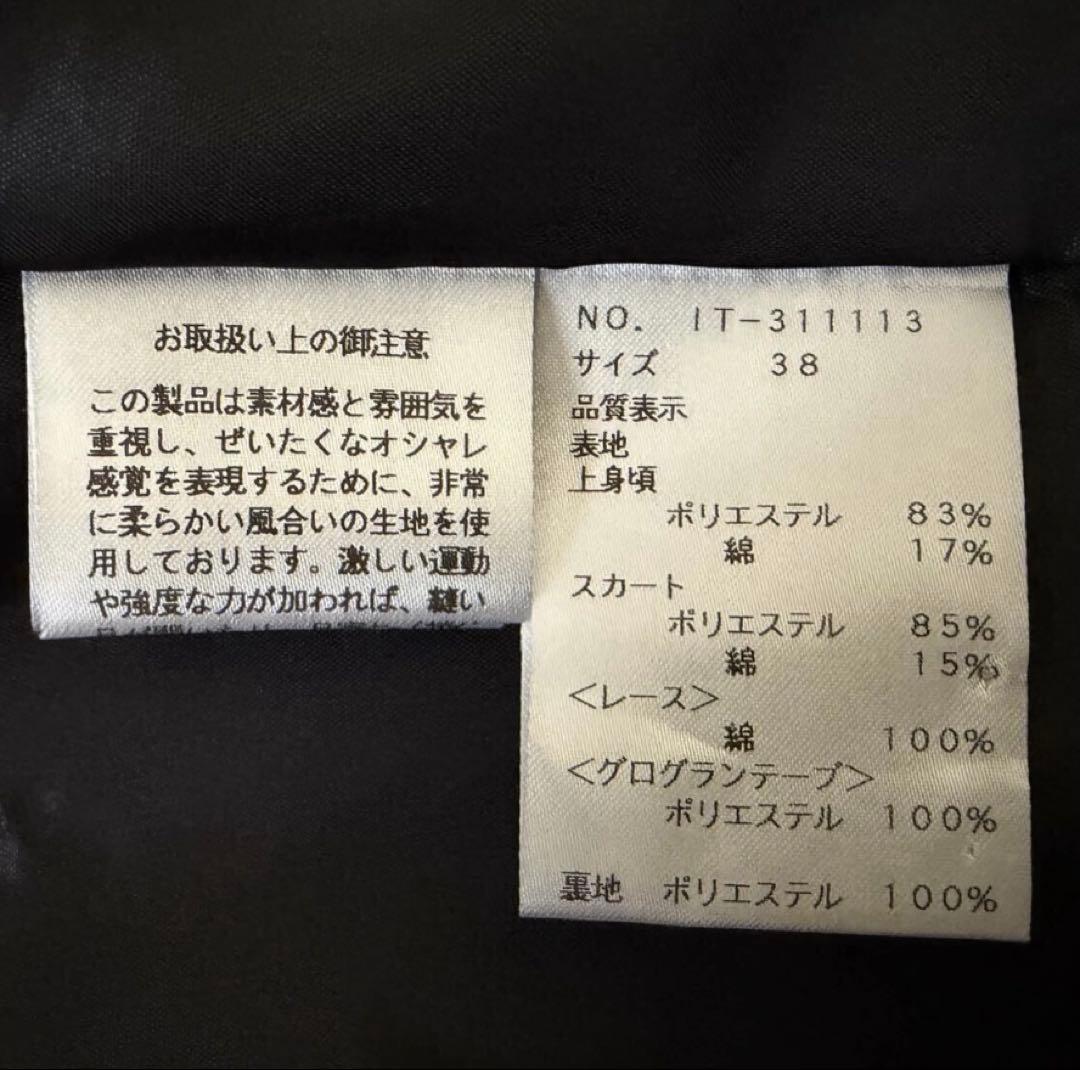 お取扱い上の御注意
この製品は素材感と雰囲気を
重視し、ぜいたくなオシャレ
感覚を表現するために、非常
に柔らかい風合いの生地を使
用しております。激しい運動
や強度な力が加われば、縫い
NO. IT-311113
サイズ 38
品質表示
表地
上身頃
ポリエステル 83%
綿 17%
スカート
ポリエステル 85%
綿 15%
<レース>
綿 100%
<グログランテープ>
ポリエステル 100%
裏地 ポリエステル 100%